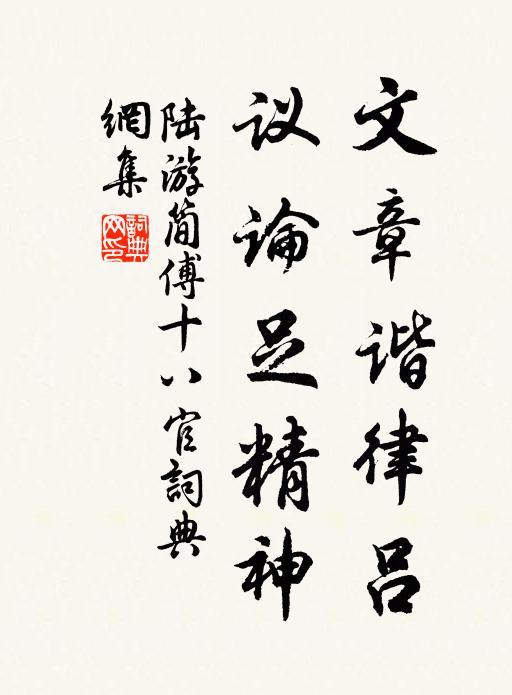 文章谐律吕
议論足精神
陆游简傅十八官詞典
網集
詞典
网印